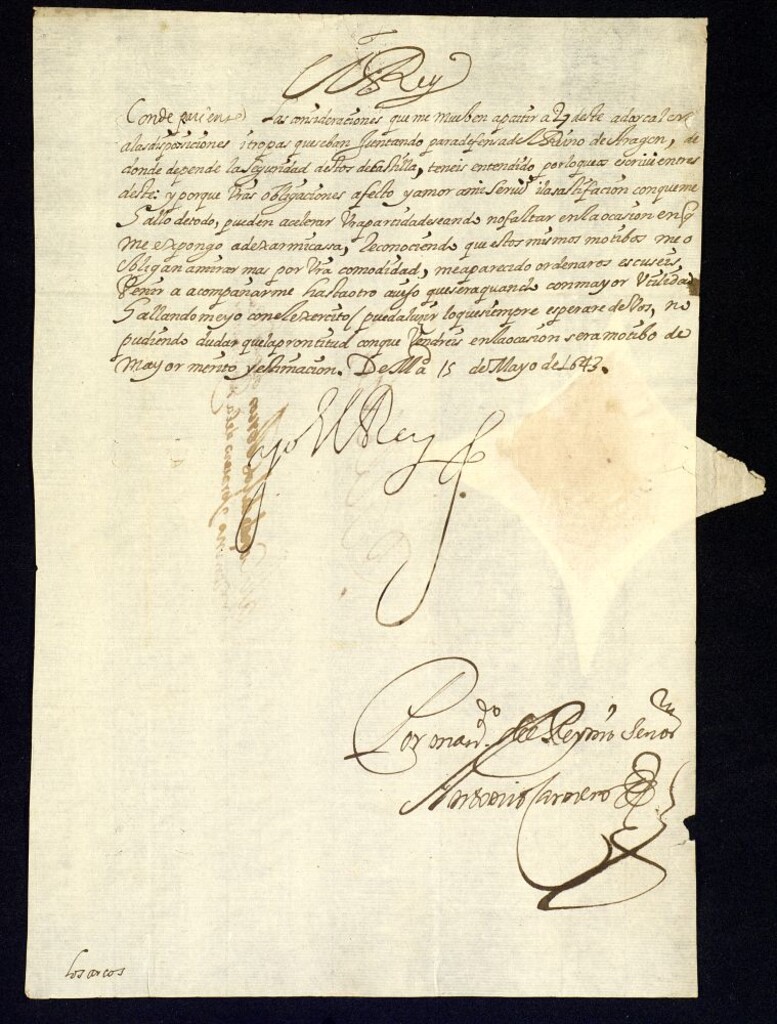 El Rey
Conde pariente Las consideraciones que me mueben a partir a 27 deste a dar calor
a las disposiciones i tropas que se ban Juntando para defensa del Reino de Aragon, de
donde depende la seguridad destos de Castilla, teneis entendido por lo que os escriui en tres
deste: y porque Vras obligaciones afecto y amor a mi seruiº i la satisfacion con que me
hallo de todo, pueden acelerar Vra partida deseando no faltar en la ocasion en q
me expongo a dexar mi casa, reconociendo que estos mismos motibos me o
bligan a mirar mas por Vra comodidad, me a parecido ordenaros escuseis
Venir a acompañarme hasta otro auiso que sera quando con mayor Vtilidad
hallandome yo con el exercito pueda lugir lo que siempre esperare de Vos, no
pudiendo dudar que la prontitud con que Vendreis en la ocasion sera motibo de
Mayor merito y estimacion. De Md a 15 de Mayo de 1643.
yo El Rey
Por mandº del Rey nrº Señor
Antonio Carnero
los arcos